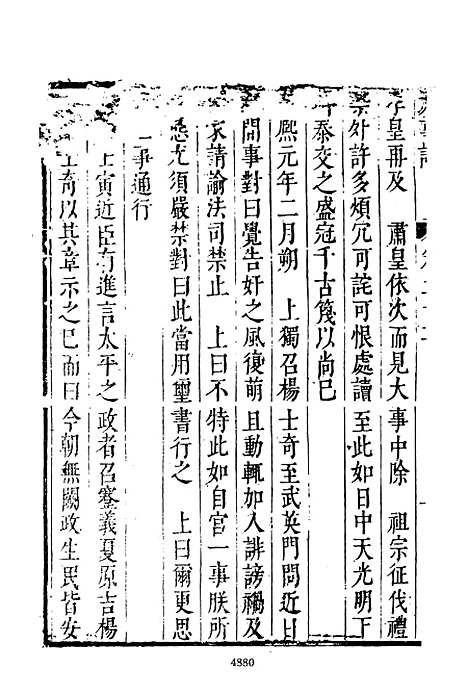 皇再及　肅皇依次而見大事中除　祖宗征伐禮
外許多煩冗可詫可恨處讀至此如日中天光明下
泰交之盛冠千古篾以尚已
熙元年二月朔　上獨召楊士奇至武英門問近日
聞事對曰覺告奸之風復萌且動輒加人誹謗禍及
家請諭法司禁止　上曰不特此如自宮一事朕所
惡尤須嚴禁對曰此當用璽書行之　上曰爾更思
一事通行
上寅近臣有進言太平之政者召蹇義夏原吉楊
士奇以其章示之已而曰今朝無闕政生民皆安
4880